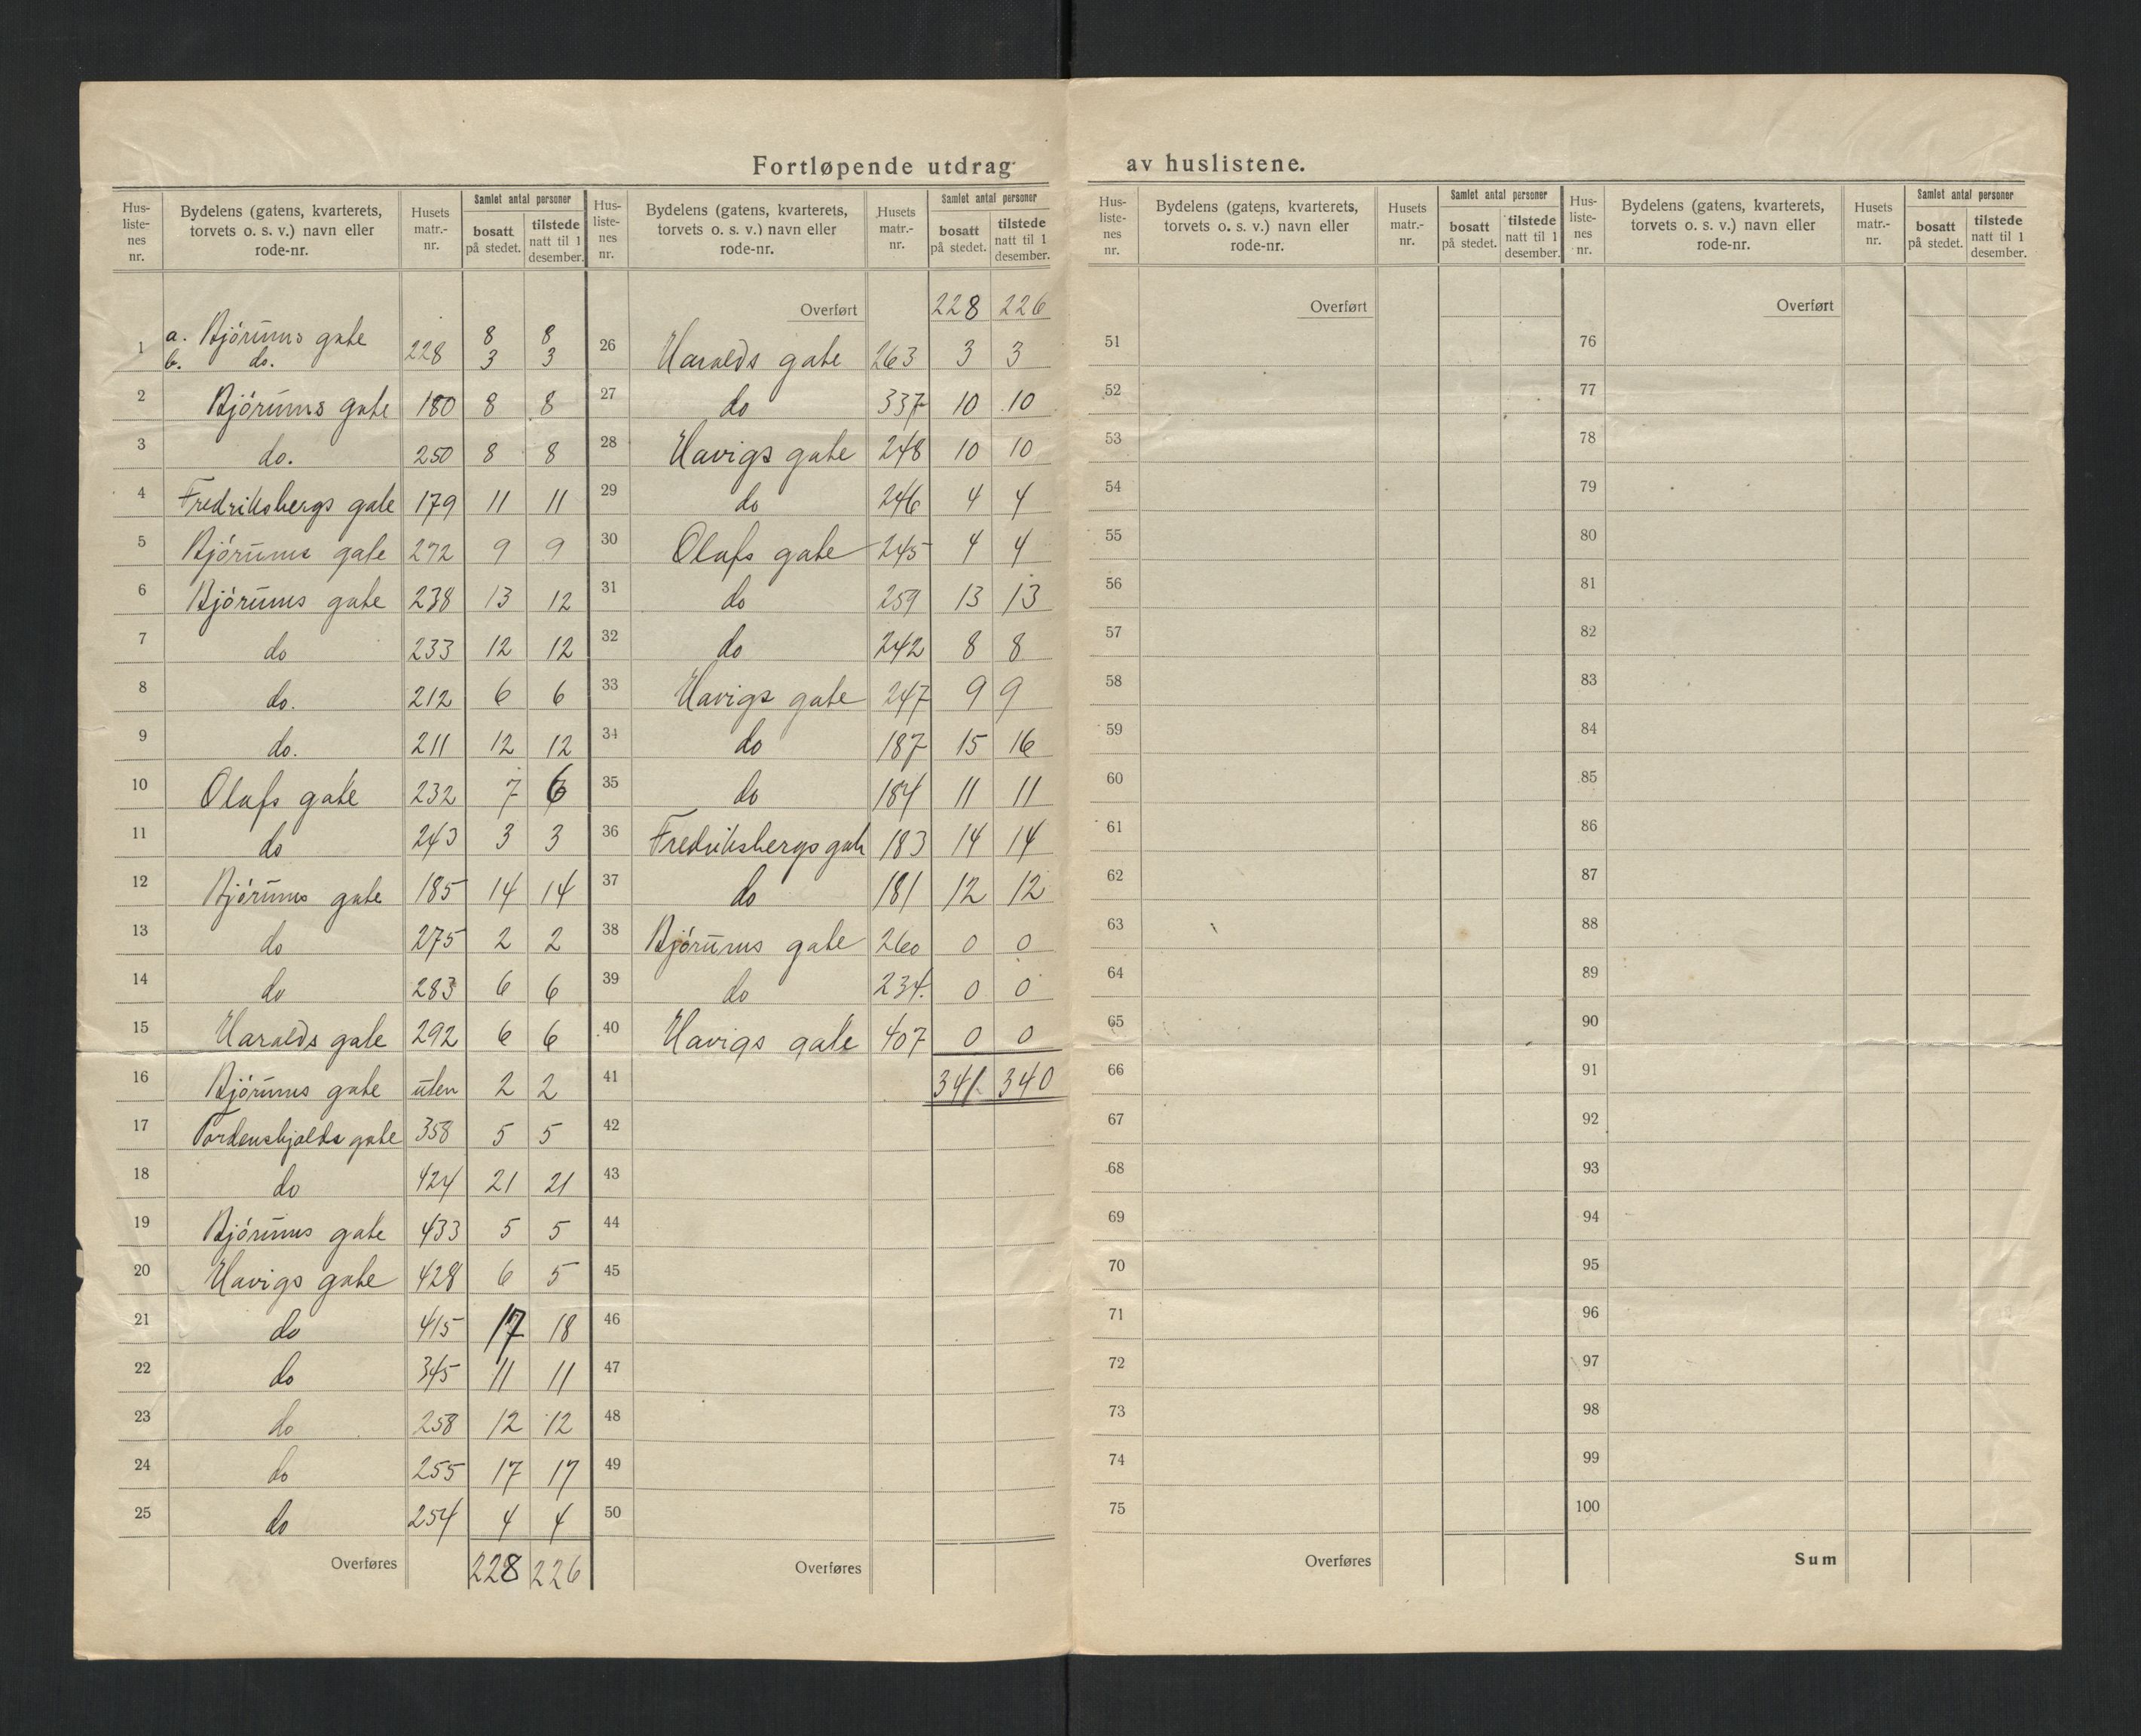 Fortløpende utdrag av huslistene.
Hus-liste-nes nr. | Bydelens (gatens, kvarterets, torvets o. s. v.) navn eller rode-nr. | Husets matr.-nr. | Samlet antal personer | bosatt på stedet. | tilstede natt til 1 desember.
1 a. Bjórums gate 228 8 8
b. do. 3 3
2 Bjórums gate 180 8 8
3 do. 250 8 8
4 Fredriksbergs gate 179 11 11
5 Bjórums gate 272 9 9
6 Bjórums gate 238 13 12
7 do 233 12 12
8 do. 212 6 6
9 do. 211 12 12
10 Olafs gate 232 7 6
11 do 243 3 3
12 Bjórums gate 185 14 14
13 do 275 2 2
14 do 283 6 6
15 Haralds gate 292 6 6
16 Bjórums gate uten 2 2
17 Tordenskjolds gate 358 5 5
18 do 424 21 21
19 Bjórums gate 433 5 5
20 Havigs gate 428 6 5
21 do 415 17 18
22 do 345 11 11
23 do 258 12 12
24 do 255 17 17
25 do 254 4 4
Overføres 228 226
Hus-liste-nes nr. | Bydelens (gatens, kvarterets, torvets o. s. v.) navn eller rode-nr. | Husets matr.-nr. | Samlet antal personer | bosatt på stedet. | tilstede natt til 1 desember.
Overført 228 226
26 Haralds gate 263 3 3
27 do 337 10 10
28 Havigs gate 248 10 10
29 do 246 4 4
30 Olafs gate 245 4 4
31 do 259 13 13
32 do 242 8 8
33 Havigs gate 247 9 9
34 do 187 15 16
35 do 184 11 11
36 Fredriksbergs gate 183 14 14
37 do 181 12 12
38 Bjórums gate 260 0 0
39 do 234. 0 0
40 Havigs gate 407 0 0
41 341 340
42
43
44
45
46
47
48
49
50
Overføres
Hus-liste-nes nr. | Bydelens (gatens, kvarterets, torvets o. s. v.) navn eller rode-nr. | Husets matr.-nr. | Samlet antal personer | bosatt på stedet. | tilstede natt til 1 desember.
Overført
51
52
53
54
55
56
57
58
59
60
61
62
63
64
65
66
67
68
69
70
71
72
73
74
75
Overføres
Hus-liste-nes nr. | Bydelens (gatens, kvarterets, torvets o. s. v.) navn eller rode-nr. | Husets matr.-nr. | Samlet antal personer | bosatt på stedet. | tilstede natt til 1 desember.
Overført
76
77
78
79
80
81
82
83
84
85
86
87
88
89
90
91
92
93
94
95
96
97
98
99
100
Sum